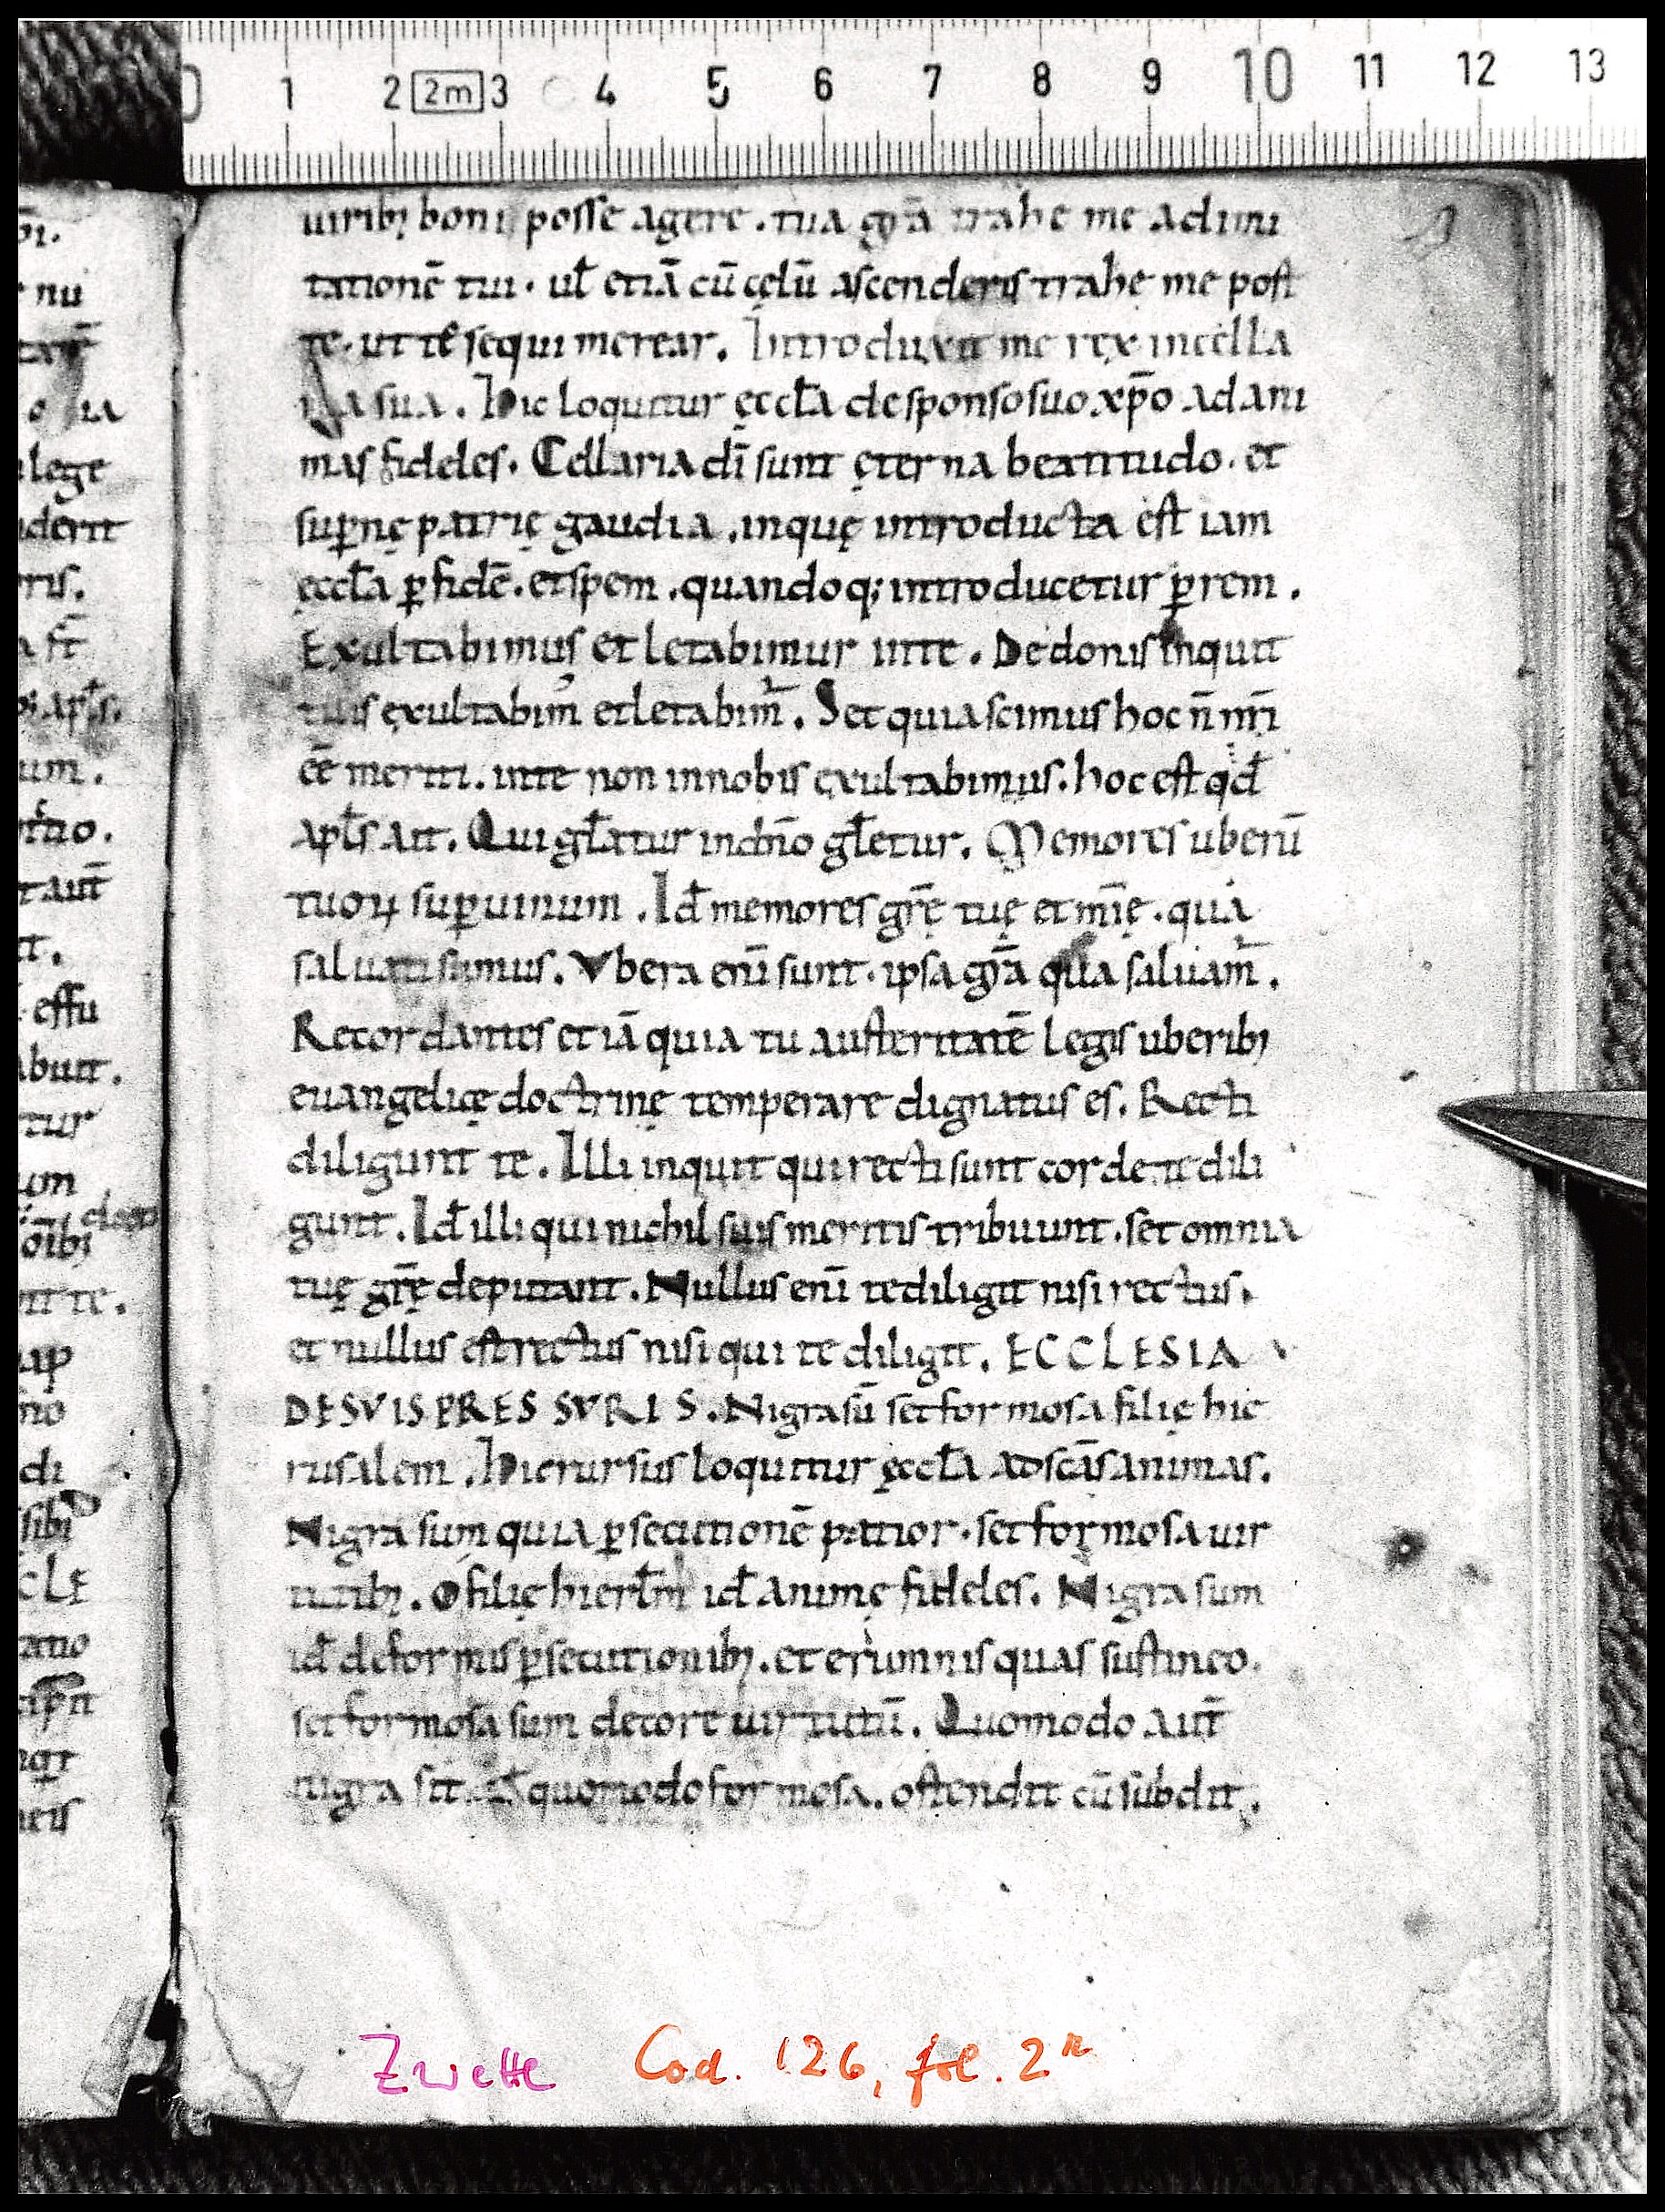 0 1 2 2m 3 4 5 6 7 8 9 10 11 12 13
uirib; boni posse agere. tua gr̄a trahe me ad imi
tationē tui. ul̄ etiā cū cęlū ascenderis trahe me post
te. ut te sequi merear. Introduxit me rex in cella
ria sua. Hic loquitur ęccl̄a de sponso suo xp̄o ad ani
mas fideles. Cellaria dī sunt ęterna beatitudo. et
sup̄nę patrię gaudia. in quę introducta est iam
ęccl̄a ꝑ fidē. et spem. quandoq; introducetur ꝑ rem.
Exultabimus et letabimur in te. De donis inquit
tuis exultabim᷒ et letabim̄. Set quia scimus hoc n̄ nr̄i
eē̄ meriti. in te non in nobis exultabimus. hoc est qd̄
apl̄s ait. Qui gl̄atur in dn̄o gl̄etur. Memores uberū
tuoꝝ suꝑ uinum. Id̄ memores gr̄ę tuę et mīę. qua
saluati sumus. Vbera enī sunt. ipsa gr̄a qua saluam̄.
Recordantes etiā quia tu austeritatē legis uberib;
euangelicę doctrinę temperare dignatus es. Recti
diligunt te. Illi inquit qui recti sunt corde te dili
gunt. Id̄ illi qui nichil suis meritis tribuunt. set omnia
tuę gr̄ę deputant. Nullus enī te diligit nisi rectus.
et nullus est rectus nisi qui te diligit. ECCLESIA
DE SVIS PRESSVRIS. Nigra sū set formosa filię hie
rusalem. Hic rursus loquitur ęccl̄a ad scās animas.
Nigra sum quia ꝑsecutionē patior. set formosa uir
tutib;. O filię hierl̄m id̄ animę fideles. Nigra sum
id̄ deformis ꝑsecutionib;. et erumnis quas sustineo.
set formosa sum decore uirtutū. Quomodo aut̄
nigra sit. ul̄ quomodo formosa. ostendit cū subdit.
Zwettl Cod. 126, fol. 2r